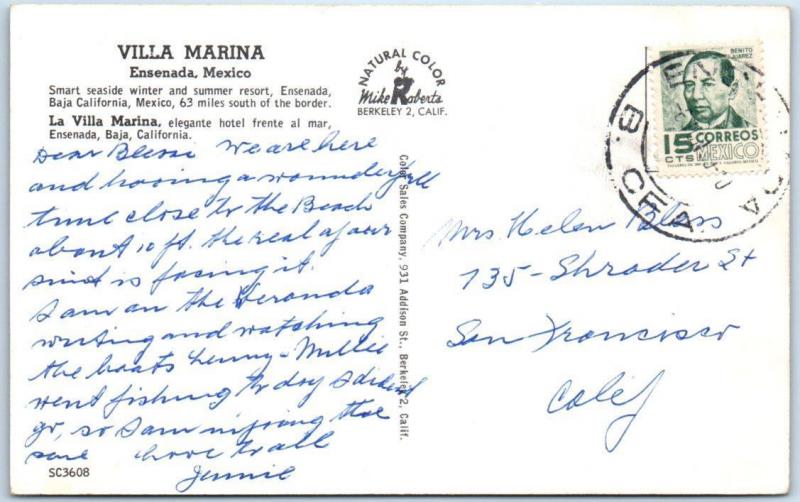 VILLA MARINA
Ensenada, Mexico
Smart seaside winter and summer resort, Ensenada,
Baja California, Mexico, 63 miles south of the border.
La Villa Marina, elegante hotel frente al mar,
Ensenada, Baja, California.
NATURAL COLOR
by
Mike Roberts
BERKELEY 2, CALIF.
BENITO
JUAREZ
15 CORREOS
CTS MEXICO
B. CFA.
Dear Blesse we are here
and having a wounderfull
time close to the Beach
about 10 ft. the real of our
is facing it.
I am on the veronda
writing and watching
the boats Lenny - Millie
went fishing to day I dident
go, so I am injoing the
sone love to all
Jennie
Color Sales Company, 931 Addison St., Berkeley 2, Calif.
Mrs Helen Bless
735 - Shroder St
San Francisco
Calif
SC3608